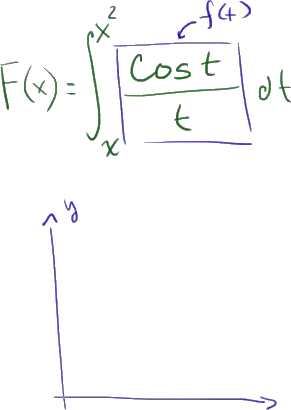 f(t)
F(x) = ∫ₓ^{x²} cos t / t dt
y